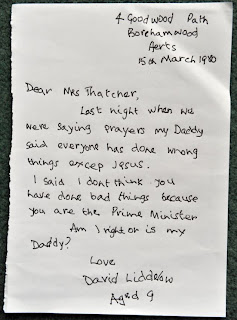 4 Goodwood Path
Borehamwood
Herts
15th March 1980
Dear Mrs Thatcher,
Last night when we
were saying prayers my Daddy
said everyone has done wrong
things excep Jesus.
I said I dont think you
have done bad things because
you are the Prime Minister
Am I right or is my
Daddy?
Love
David Liddelow
Aged 9